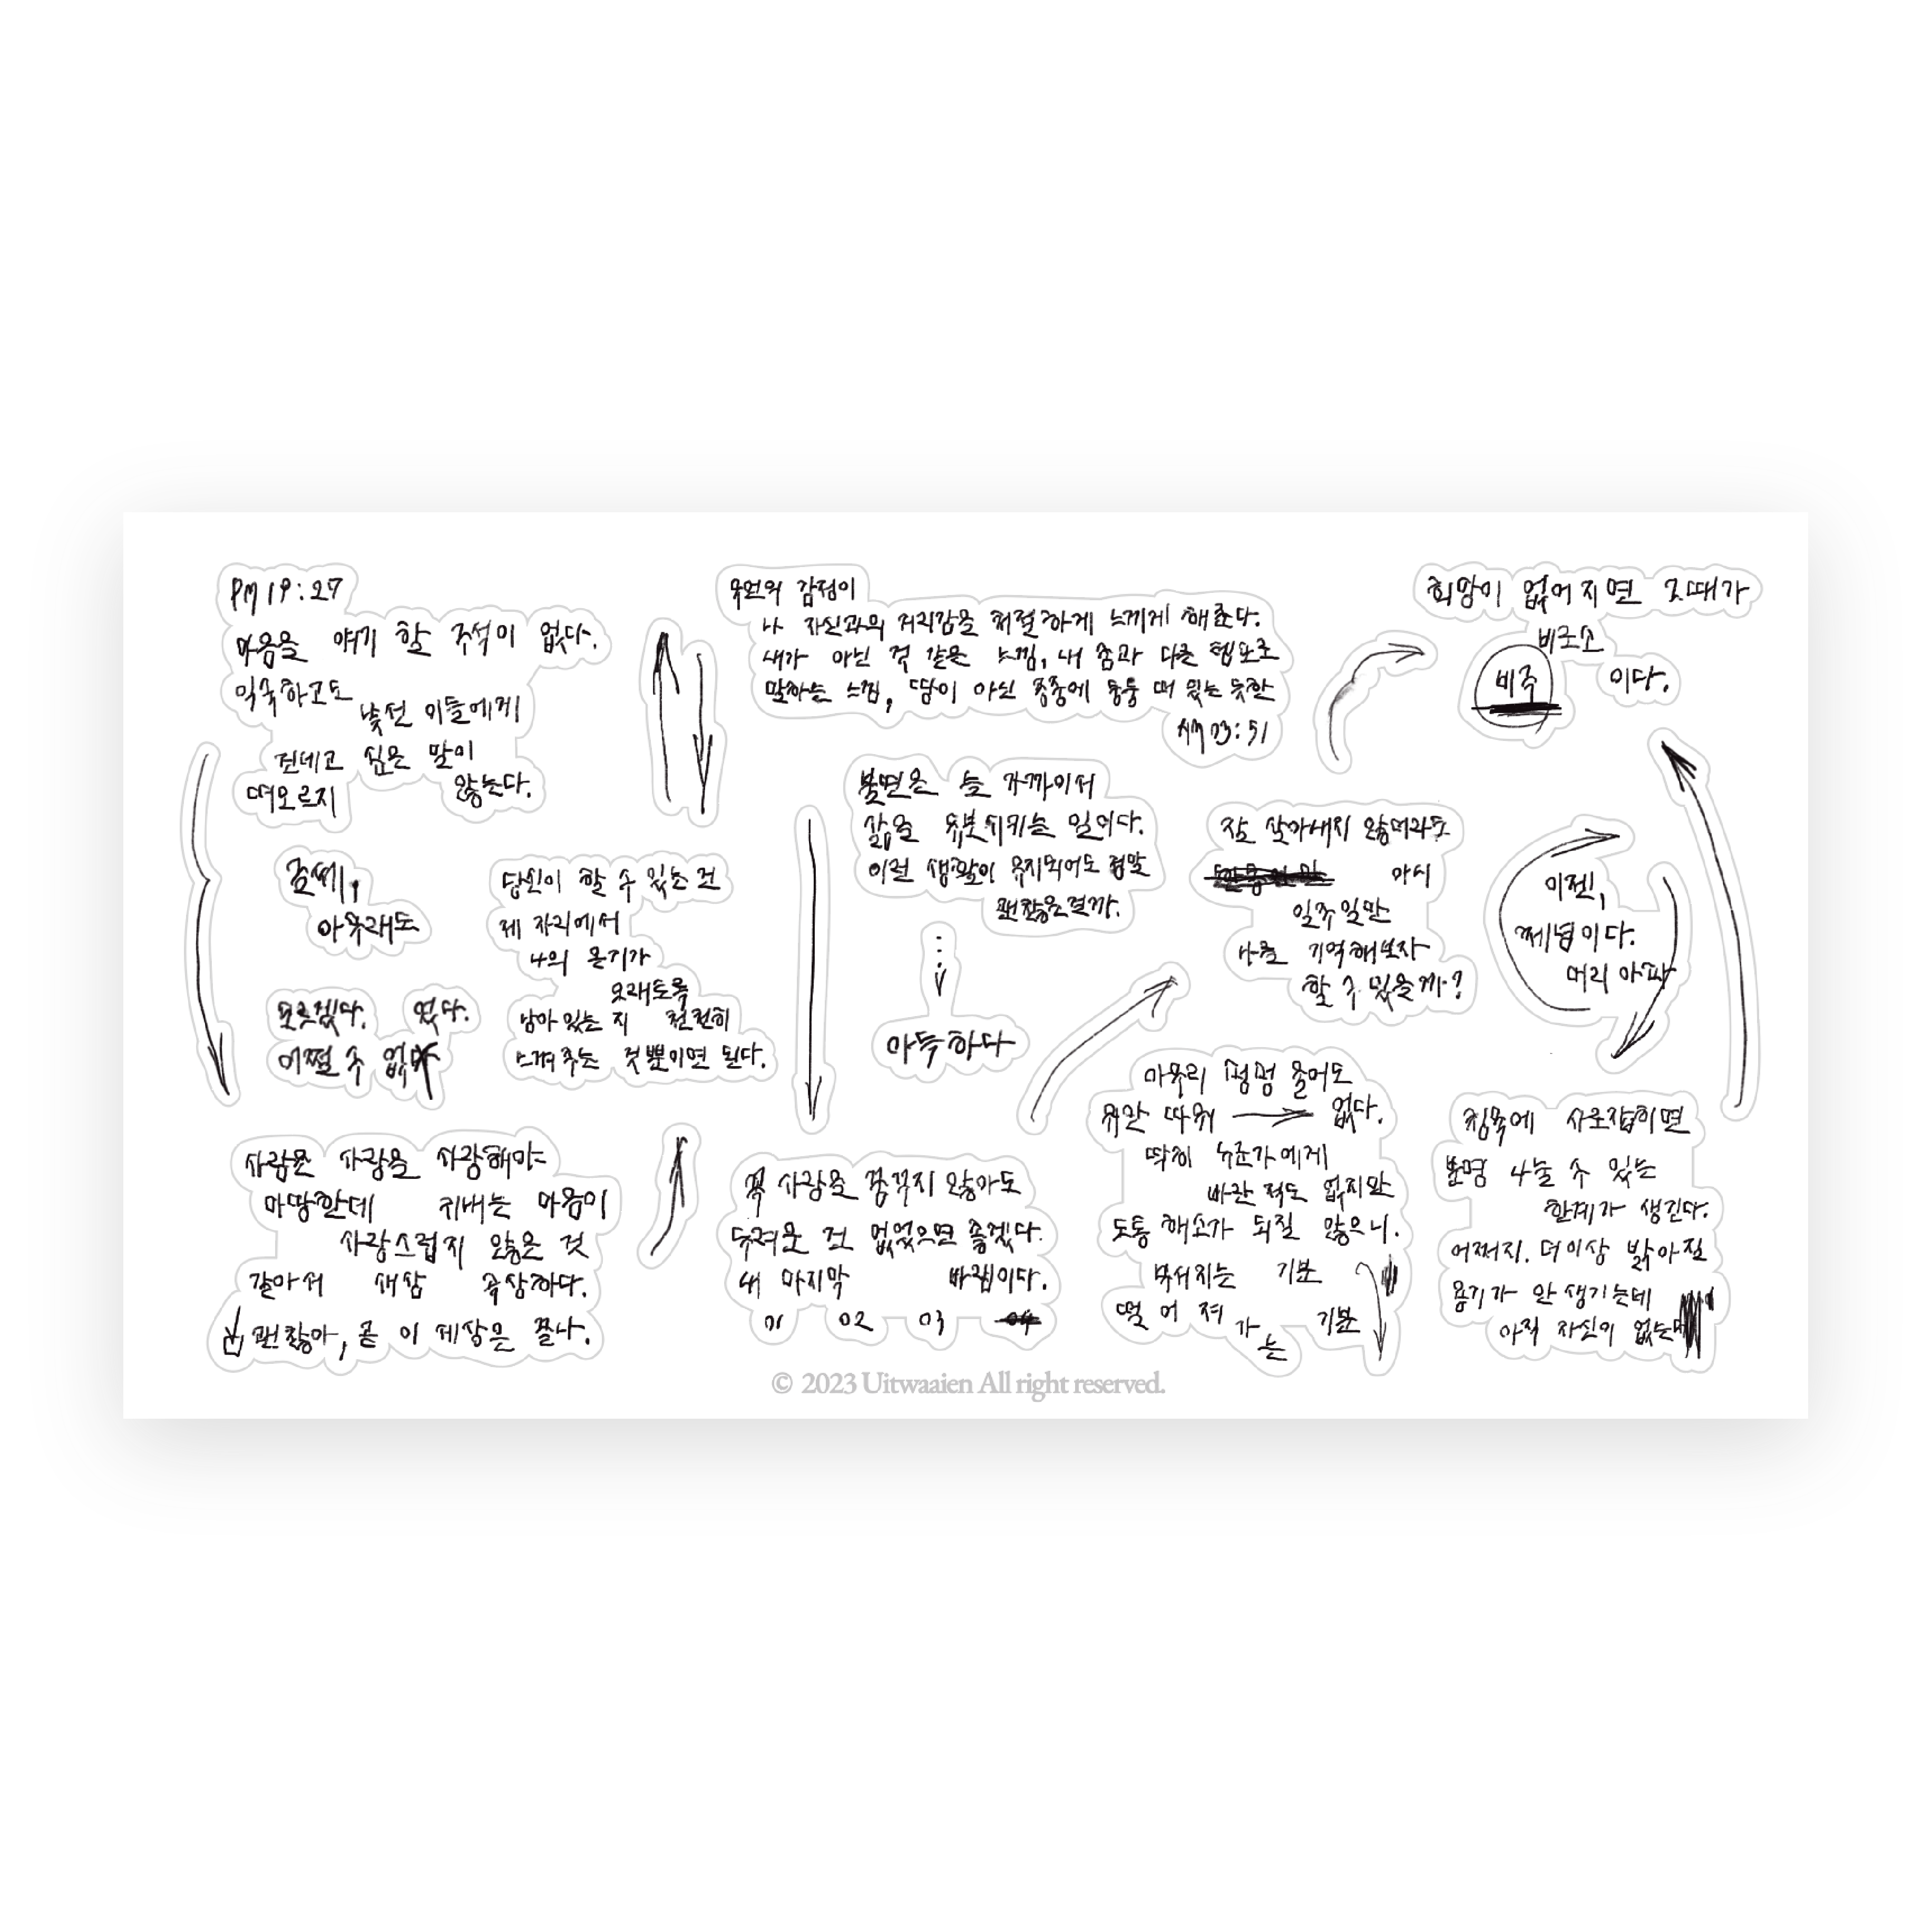 PM 19:27
마음을 얘기 할 구석이 없다.
익숙하고도
낯선 이들에게
건네고 싶은 말이
떠오르지 않는다.
글쎄,
아무래도
모르겠다. 었다.
어쩔 수 없다
당신이 할 수 있는 건
제 자리에서
나의 온기가
오래도록
남아 있는 지 천천히
느껴주는 것뿐이면 된다.
사람은 사랑을 사랑해야
마땅한데 귀배는 마음이
사랑스럽지 않은 것
같아서 새삼 속상하다.
괜찮아, 곧 이 세상은 끝나.
무언의 감정이
나 자신과의 저리감을 처절하게 느끼게 해준다.
내가 아닌 것 같은 느낌, 내 몸과 다른 템포로
말하는 느낌, 땅이 아닌 공중에 동동 떠 있는 듯한
AM 03:51
불면은 늘 가까이서
삶을 뒤붓시키는 일이다.
이런 생활이 유지되어도 정말
괜찮은걸까.
아득하다
꼭 사랑을 꿈꾸지 않아도
두려운 건 없었으면 좋겠다.
내 마지막 바램이다.
01 02 03 04
희망이 없어지면 그때가
비로소
비주 이다.
잘 살아내지 않더라도
다시
일주일만
나를 기억해보자
할 수 있을까?
이젠,
체념이다.
머리 아파
아무리 펑펑 울어도
위안 따위 없다.
딱히 누군가에게
바란 적도 없지만
도통 해소가 되질 않으니.
부서지는 기분
떨어져가는 기분
침묵에 사로잡히면
분명 나눌 수 있는
한계가 생긴다.
어쩌지. 더이상 밝아질
용기가 안 생기는데
아직 자신이 없는데
© 2023 Uitwaaien All right reserved.